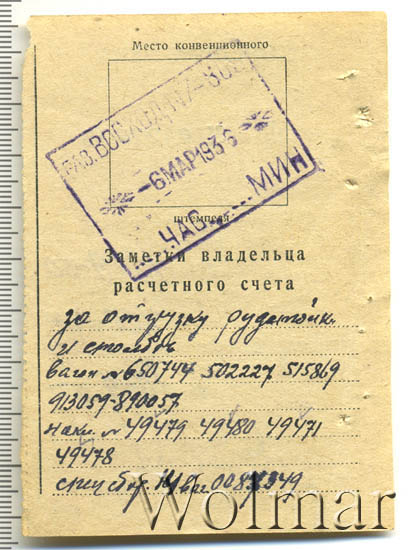 Место конвенционного
РАЗ. ВОСХОД
6 МАР 1936
ЧАС. МИН
штемпеля
Заметки владельца
расчетного счета
за отгрузку рудстойки
и столбов
вагон № 650744 502227 515869
913059-890057
накл № 49479 49480 49471
49478
Wolmar